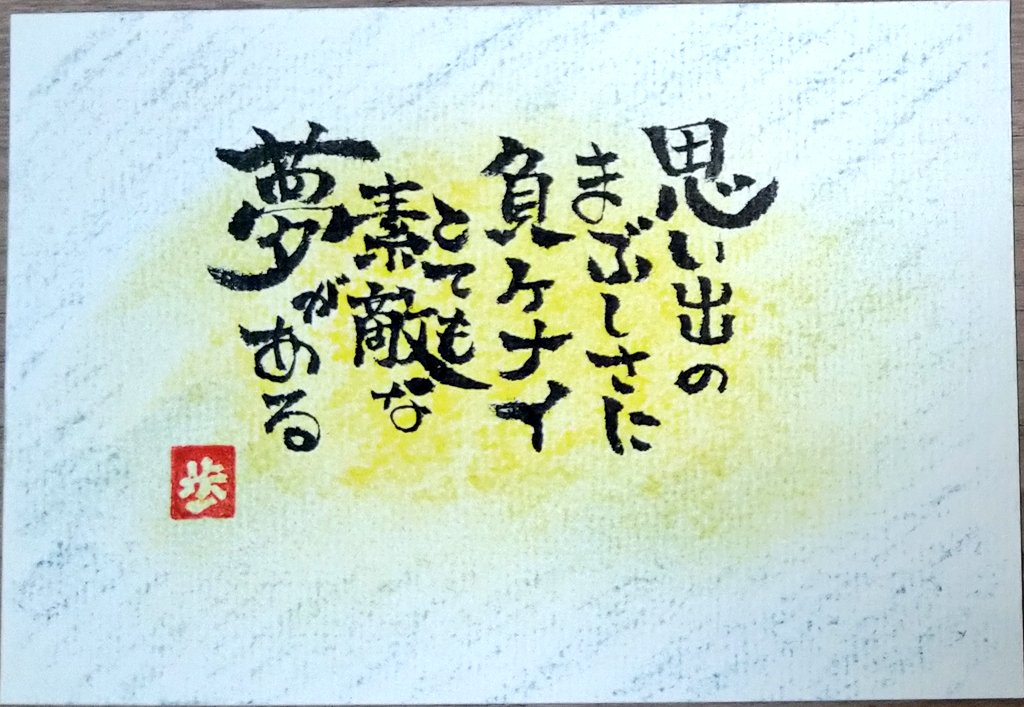 思い出の
まぶしさに
負ケナイ
とても
素敵な
夢がある
歩